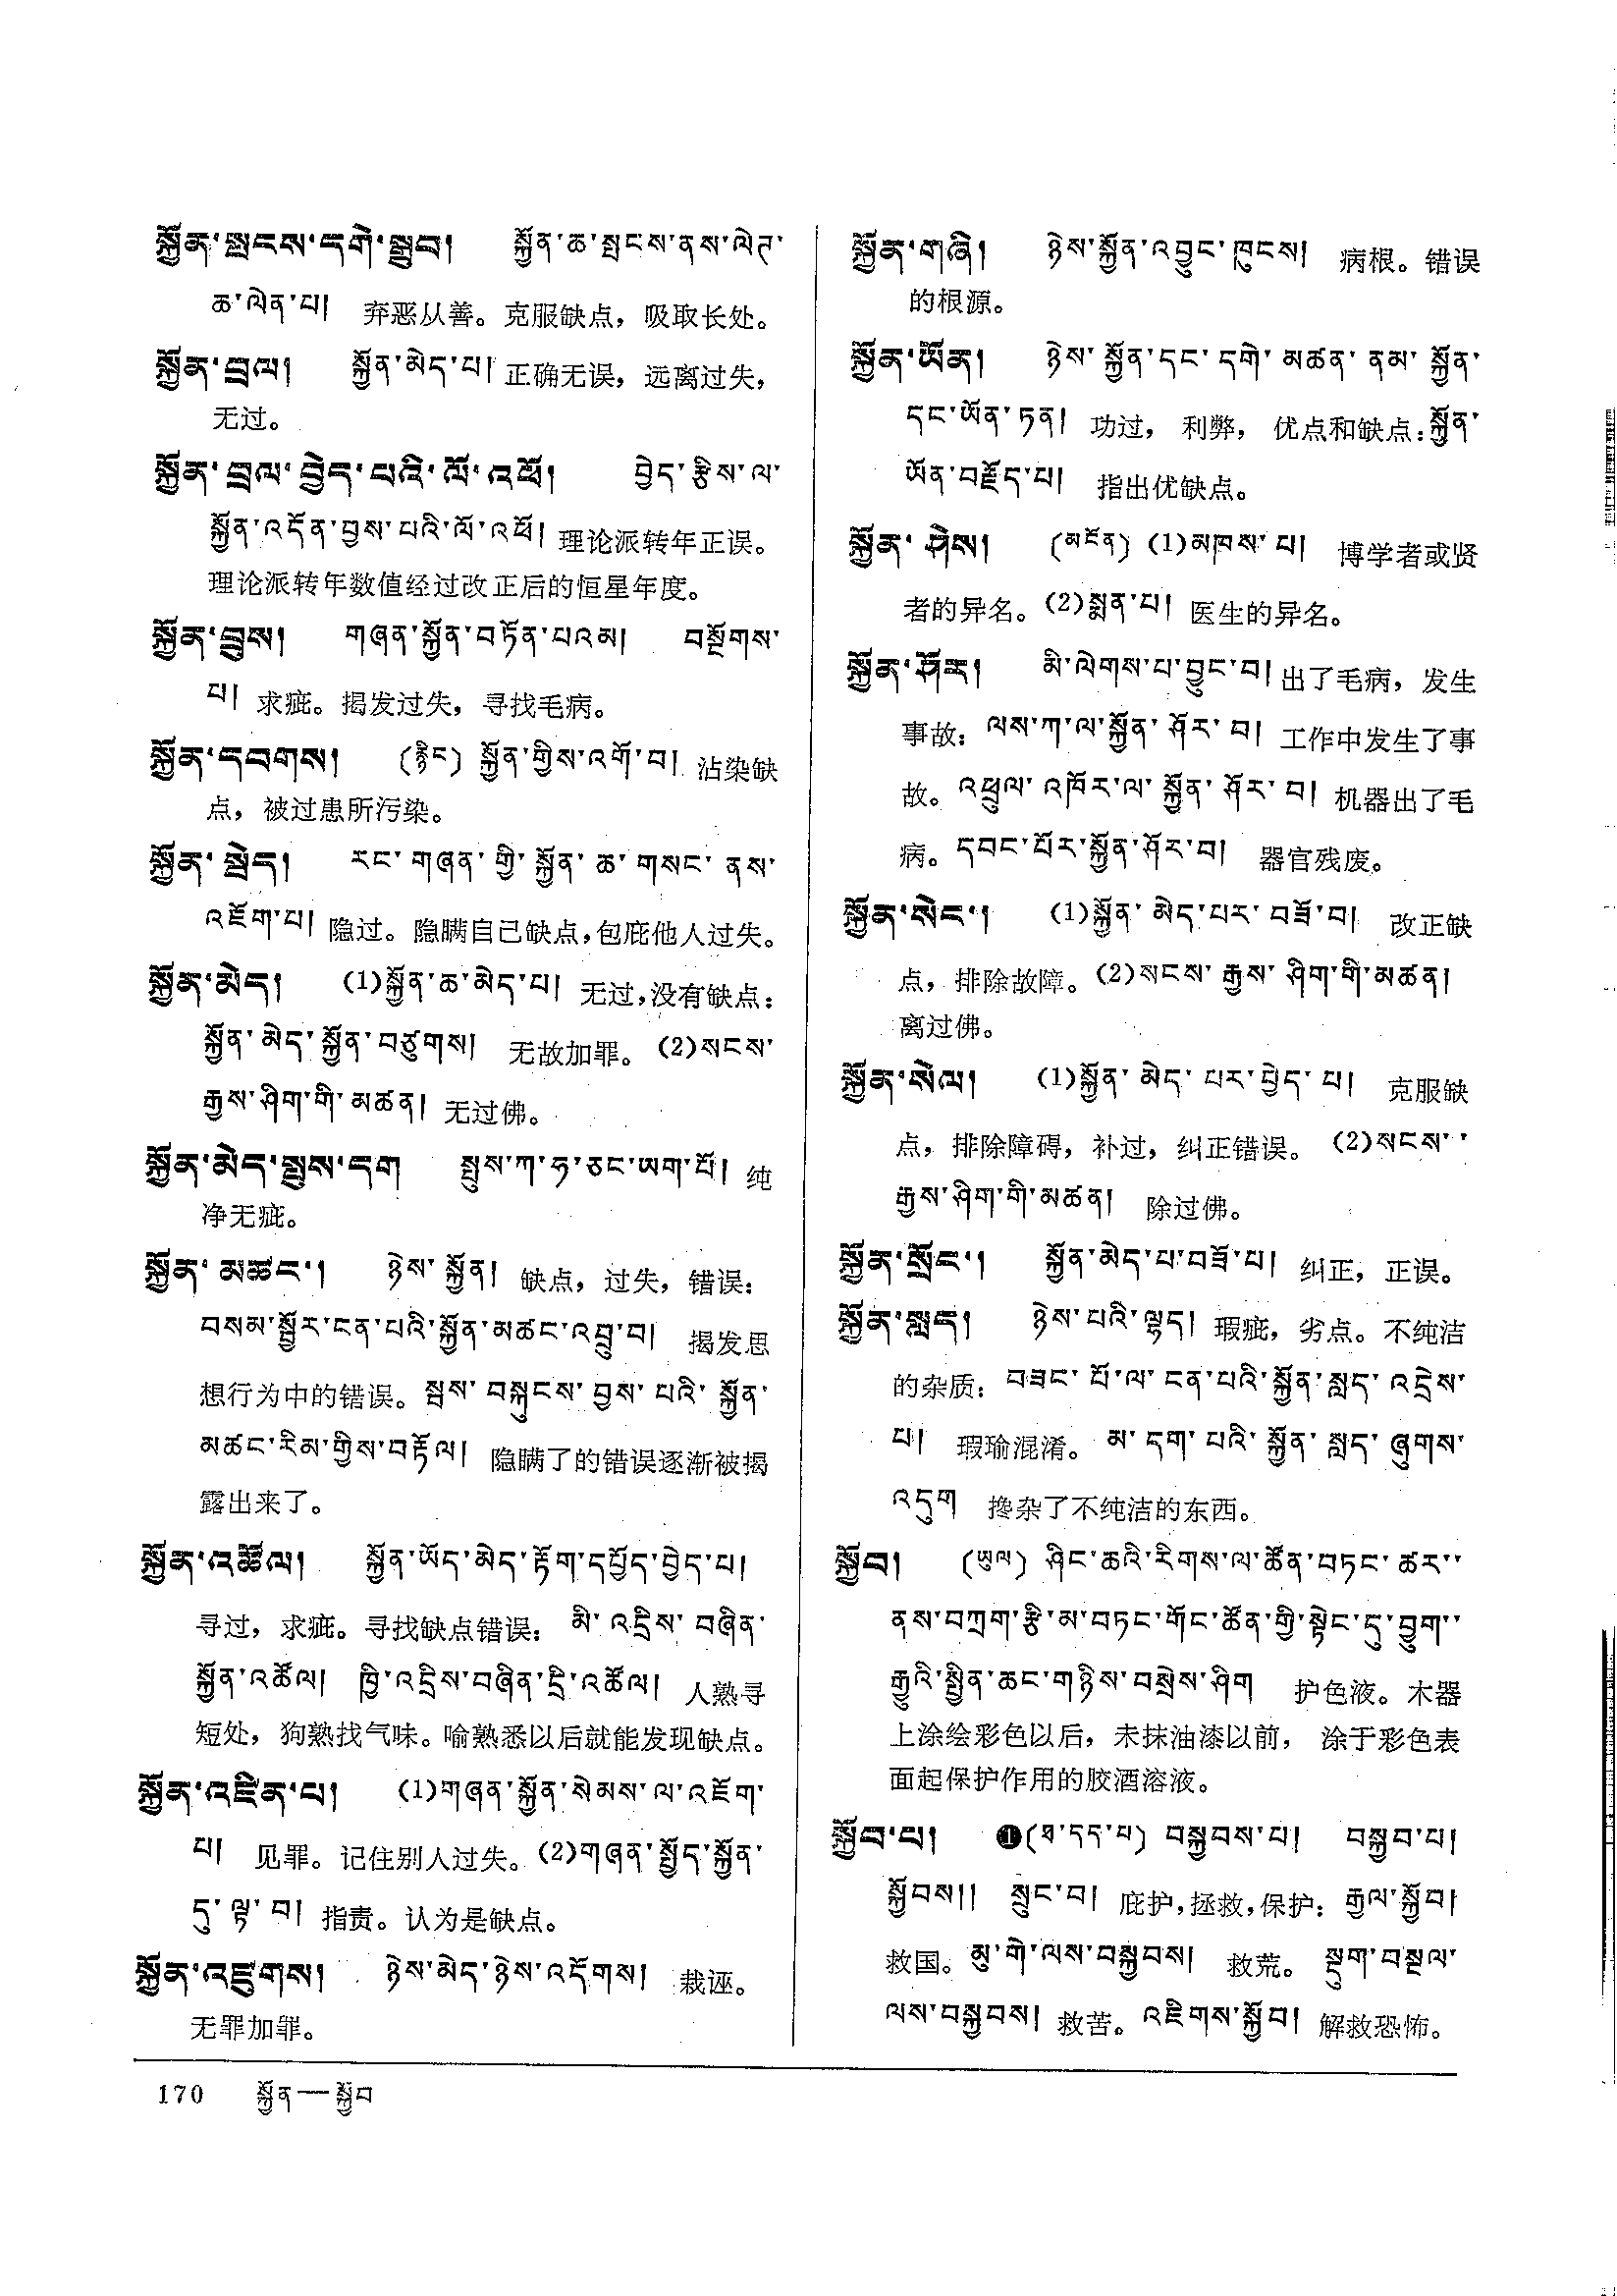 སྐྱོན་སྤངས་དགེ་སྒྲུབ། སྐྱོན་ཆ་སྤངས་ནས་ལེཊ་
ཆ་ལེན་པ། 弃恶从善。克服缺点，吸取长处。
སྐྱོན་བྲལ། སྐྱོན་མེད་པ། 正确无误，远离过失，
无过。
སྐྱོན་བྲལ་བྱེད་པའི་ལོ་འཕོ། བྱེད་རྩིས་ལ་
སྐྱོན་འདོན་བྱས་པའི་ལོ་འཕོ། 理论派转年正误。
理论派转年数值经过改正后的恒星年度。
སྐྱོན་བྲུས། གཞན་སྐྱོན་བཏོན་པའམ། བསྔོགས་
པ། 求疵。揭发过失，寻找毛病。
སྐྱོན་དབགས། (རྙིང) སྐྱོན་གྱིས་འགོ་བ། 沾染缺
点，被过患所污染。
སྐྱོན་སྦེད། རང་གཞན་གྱི་སྐྱོན་ཆ་གསང་ནས་
འཇོག་པ། 隐过。隐瞒自己缺点，包庇他人过失。
སྐྱོན་མེད། (1)སྐྱོན་ཆ་མེད་པ། 无过，没有缺点：
སྐྱོན་མེད་སྐྱོན་བཙུགས། 无故加罪。(2)སངས་
རྒྱས་ཤིག་གི་མཚན། 无过佛。
སྐྱོན་མེད་སྤུས་དག སྤུས་ཀ་ཧ་ཅང་ཡག་པོ། 纯
净无疵。
སྐྱོན་མཚང་། ཉེས་སྐྱོན། 缺点，过失，错误：
བསམ་སྦྱོར་ངན་པའི་སྐྱོན་མཚང་འབྲུ་བ། 揭发思
想行为中的错误。སྦས་བསྐུངས་བྱས་པའི་སྐྱོན་
མཚང་རིམ་གྱིས་བརྟོལ། 隐瞒了的错误逐渐被揭
露出来了。
སྐྱོན་འཚོལ། སྐྱོན་ཡོད་མེད་རྟོག་དཔྱོད་བྱེད་པ།
寻过，求疵。寻找缺点错误：མི་འདྲིས་བཞིན་
སྐྱོན་འཚོལ། ཁྱི་འདྲིས་བཞིན་དྲི་འཚོལ། 人熟寻
短处，狗熟找气味。喻熟悉以后就能发现缺点。
སྐྱོན་འཛིན་པ། (1)གཞན་སྐྱོན་སེམས་ལ་འཇོག་
པ། 见罪。记住别人过失。(2)གཞན་སྤྱོད་སྐྱོན་
དུ་ལྟ་བ། 指责。认为是缺点。
སྐྱོན་འཛུགས། ཉེས་མེད་ཉེས་འདོགས། 栽诬。
无罪加罪。
སྐྱོན་གཞི། ཉེས་སྐྱོན་འབྱུང་ཁུངས། 病根。错误
的根源。
སྐྱོན་ཡོན། ཉེས་སྐྱོན་དང་དགེ་མཚན་ནམ་སྐྱོན་
དང་ཡོན་ཏན། 功过，利弊，优点和缺点：སྐྱོན་
ཡོན་བརྗོད་པ། 指出优缺点。
སྐྱོན་ཤེས། (མངོན) (1)མཁས་པ། 博学者或贤
者的异名。(2)སྨན་པ། 医生的异名。
སྐྱོན་ཤོར། མི་ལེགས་པ་བྱུང་བ། 出了毛病，发生
事故：ལས་ཀ་ལ་སྐྱོན་ཤོར་བ། 工作中发生了事
故。འཕྲུལ་འཁོར་ལ་སྐྱོན་ཤོར་བ། 机器出了毛
病。དབང་པོར་སྐྱོན་ཤོར་བ། 器官残废。
སྐྱོན་སེང་། (1)སྐྱོན་མེད་པར་བཟོ་བ། 改正缺
点，排除故障。(2)སངས་རྒྱས་ཤིག་གི་མཚན།
离过佛。
སྐྱོན་སེལ། (1)སྐྱོན་མེད་པར་བྱེད་པ། 克服缺
点，排除障碍，补过，纠正错误。(2)སངས་་
རྒྱས་ཤིག་གི་མཚན། 除过佛。
སྐྱོན་སྲོང་། སྐྱོན་མེད་པ་བཟོ་པ། 纠正，正误。
སྐྱོན་སླད། ཉེས་པའི་ལྷད། 瑕疵，劣点。不纯洁
的杂质：བཟང་པོ་ལ་ངན་པའི་སྐྱོན་སླད་འདྲེས་
པ། 瑕瑜混淆。མ་དག་པའི་སྐྱོན་སླད་ཞུགས་
འདུག 搀杂了不纯洁的东西。
སྐྱོབ། (ཡུལ) ཤིང་ཆའི་རིགས་ལ་ཚོན་བཏང་ཚར་་
ནས་བཀྲག་རྩི་མ་བཏང་གོང་ཚོན་གྱི་སྟེང་དུ་བྱུག་་
རྒྱུའི་སྤྱིན་ཆང་གཉིས་བསྲེས་ཤིག 护色液。木器
上涂绘彩色以后，未抹油漆以前，涂于彩色表
面起保护作用的胶酒溶液。
སྐྱོབ་པ། ❶(ཐ་དད་པ) བསྐྱབས་པ། བསྐྱབ་པ།
སྐྱོབས།། སྲུང་བ། 庇护，拯救，保护：རྒྱལ་སྐྱོབ།
救国。མུ་གེ་ལས་བསྐྱབས། 救荒。སྡུག་བསྔལ་
ལས་བསྐྱབས། 救苦。འཇིགས་སྐྱོབ། 解救恐怖。
170 སྐྱོན—སྐྱོབ